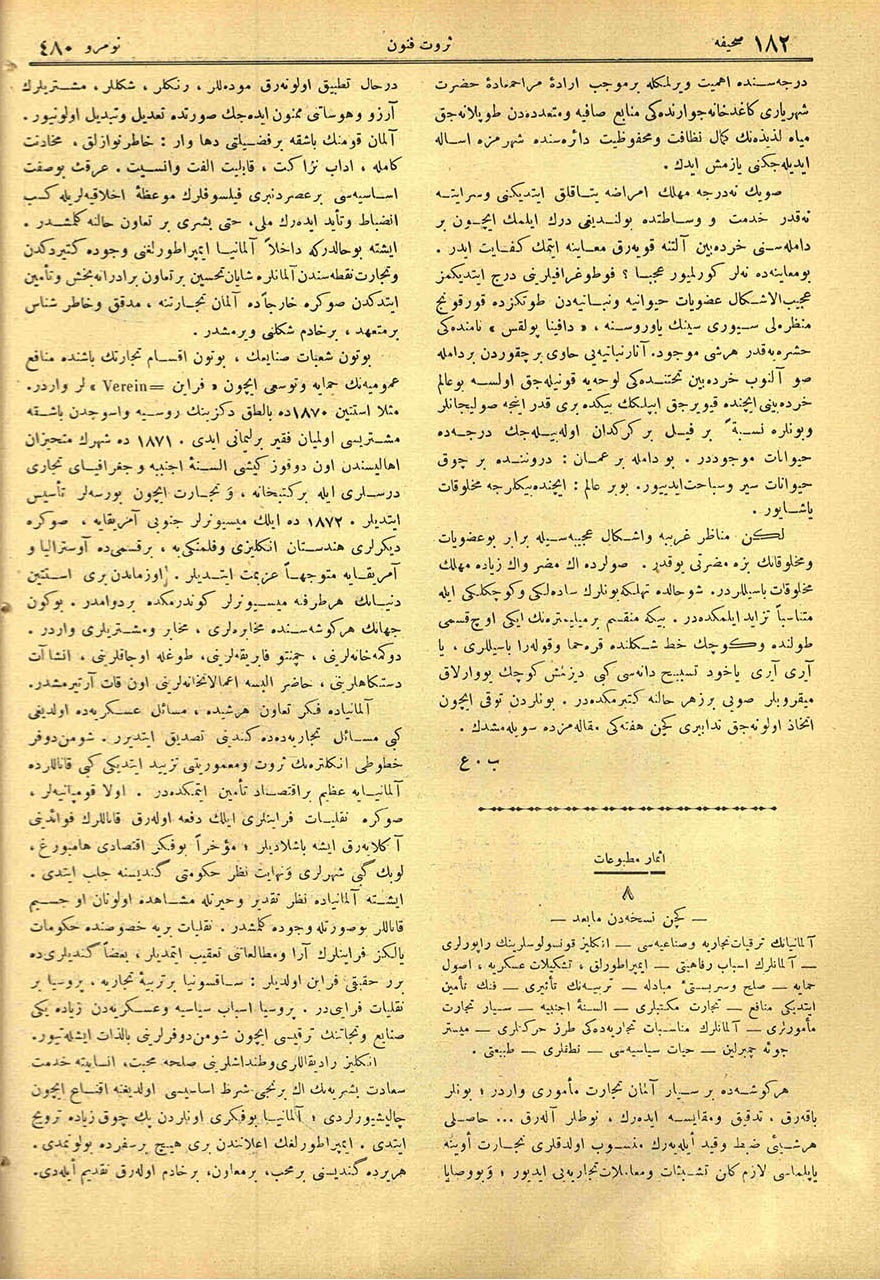 ١٨٢ صحیفه
ثروت فنون
نومرو ٤٨٠
درجه‌سنده اهمیت ویرلمکله برموجب ارادهٔ مراحمعادهٔ حضرت
شهریاری کاغدخانه‌جوارنده‌کی منابع صافیه ومتعدده‌دن طوپلانه‌جق
میاه لذیذه‌نك کمال نظافت ومحفوظیت دائره‌سنده شهرمزه اساله
ایدیله‌جکنی یازمش ایدك .
صویك نه‌درجه مهلك امراضه یتاقلق ایتدیکنی وسرایته
نه‌قدر خدمت و وساطتده بولندیغی درك ایلمك ایچون بر
دامله‌سنی خرده‌بین آلتنه قویه‌رق معاینه ایتمك کفایت ایدر .
بومعاینه‌ده نه‌لر کورلمیور عجبا ؟ فوطوغرافیلرینی درج ایتدیکمز
عجیب‌الاشکال عضویات حیوانیه ونباتیه‌دن طوتکزده قورقونج
منظره‌لی سیوری سینك یاوروسنه ، « دافینا پولقس » نامنده‌کی
حشره‌یه‌قدر هرشی موجود. آثارنباتیه‌یی حاوی برچقوردن بردامله
صو آلنوب خرده‌بین تحتنده‌کی لوحه‌یه قونیله‌جق اولسه بوعالم
خرده‌بینی ایچنده قیویرجق ایپلکك بیکده بری قدر اینجه صولیجانلر
وبونلره نسبةً بر فیل بر کرکدان اوله‌بیله‌جك درجه‌ده
حیوانات موجوددر . بو دامله بر عمان : دروننده بر چوق
حیوانات سیر وسباحت‌ایدییور. بوبر عالم : ایچنده‌بیکلرجه مخلوقات
یاشایور .
لکن مناظر غریبه واشکال عجیبه‌سیله برابر بوعضویات
ومخلوقاتك بزه مضرتی یوقدر. صولرده اك مضر واك زیاده مهلك
مخلوقات باسیللردر. شوحالده تهلکه‌بونلرك ساده‌لکی وکوچکلکی ایله
متناسباً تزاید ایلمکده‌در . بیکه منقسم برمیلیمتره‌نك ایکی اوچ‌قسمی
طولنده وکوچك خط شکلنده قره‌حما وقوله‌را باسیللری ، یا
آری آری یاخود تسبیح دانه‌سی کبی دیزیمش کوچك یووارلاق
میقروبلر صویی برزهر حالنه کتیرمکده‌در . بونلردن توقی ایچون
اتخاذ اولونه‌جق تدابیری کچن هفته‌کی مقاله‌مزده سویله‌مشدك .
ب . ع
اثمار مطبوعات
٨
— کچن نسخه‌دن مابعد —
آلمانیانك ترقیات تجاریه وصناعیه‌سی — انکلیز قونسولوسلرینك راپورلری
— آلمانلرك اسباب رفاهیتی — ایمپراطورلق ، تشکیلات عسکریه ، اصول
حمایه — صلح وسربستئ مبادله — تربیه‌نك تأثیری — فنك تأمین
ایتدیکی منافع — تجارت مکتبلری — السنهٔ اجنبیه — سیار تجارت
مأمورلری — آلمانلرك مناسبات تجاریه‌ده‌کی طرز حرکتلری — میستر
جوئه چمبرلین — حیات سیاسیه‌سی — نطقلری — طبیعتی .
هرکوشه‌ده بر سیار آلمان تجارت مأموری واردر ؛ بونلر
باقه‌رق ، تدقیق ومقایسه ایده‌رك ، نوطلر آله‌رق ... حاصلی
هرشیئی ضبط وقید أیله‌یه‌رك منسوب اولدقلری تجارت أوینه
یاپلماسی لازم کلن تشبثات ومعاملات تجاریه‌یی ایدیور ؛ وبووصایا
درحال تطبیق اولونه‌رق موده‌للر ، رنکلر ، شکللر ، مشتریلرك
آرزو وهوساتنی ممنون ایده‌جك صورتده تعدیل وتبدیل اولونیور.
آلمان قومنك باشقه برفضیلتی دها وار : خاطرنوازلق ، مخادنت
کامله ، اداب نزاکت ، قابلیت الفت وانسیت . عرقك بوصفت
اساسیه‌سی برعصردنبری فیلسوفلرك موعظهٔ اخلاقیه‌لریله کسب
انضباط وتأید ایده‌رك ملی، حتی بشری بر تعاون حالنه کلمشدر .
ایشته بوحالدرکه داخلاً آلمانیا ایمپراطورلغنی وجوده کتیردکدن
وتجارت نقطه‌سندن آلمانلره شایان‌تحسین برتعاون برادرانه‌بخش وتأمین
ایتدکدن صوکره خارجاًده آلمان تجارتنه ، مدقق وخاطر شناس
برمتعهد ، برخادم شکلنی ویرمشدر .
بوتون شعبات صنایعك ، بوتون اقسام تجارتك باشنده منافع
عمومیه‌نك حمایه وتوسعی ایچون « فراین =Verein » لر واردر.
مثلا استتین ١٨٧٠ده بالطق دکزینك روسیه واسوجدن باشقه
مشتریسی اولمیان فقیر برلیمانی ایدی . ١٨٧١ ده شهرك متحیزان
اهالیسندن اون دوقوز کیشی السنهٔ اجنبیه و جغرافیای تجاری
درسلری ایله برکتبخانه ، و تجارت ایچون بورسه‌لر تأسیس
ایتدیلر . ١٨٧٢ ده ایلك میسیونرلر جنوبی آمریقایه ، صوکره
دیکرلری هندستان انکلیزی وفلمنکی‌یه ، برقسمی‌ده آوسترالیا و
آمریقایه متوجهاً عزیمت ایتدیلر . اوزماندن بری استتین
دنیانك هرطرفنه میسیونرلر کوندرمکده بردوامدر . بوکون
جهانك هرکوشه‌سنده مخابره‌لری ، مخابر ومشتریلری واردر .
دوکمه‌خانه‌لرینی ، چمنتو فابریقه‌لرینی، طوغله اوجاقلرینی ، انشاآت
دستکاهلرینی ، حاضر البسه اعمالاتخانه‌لرینی اون قات آرتیرمشدر.
آلمانیاده فکر تعاون هرشیده ، مسائل عسکریه‌ده اولدیغی
کبی مسائل تجاریه‌ده‌ده کندینی تصدیق ایتدیرر . شومن‌دوفر
خطوطی انکلتره‌نك ثروت ومعموریتنی تزیید ایتدیکی کبی قاناللرده
آلمانیایه عظیم براقتصاد تأمین ایتمکده‌در . اولا قومپانیه‌لر ،
صوکره نقلیات فراینلری ایلك دفعه اوله‌رق قاناللرك فوائدینی
آکلایه‌رق ایشه باشلادیلر ؛ مؤخراً بوفکر اقتصادی هامبورغ ،
لوبك کبی شهرلری ونهایت نظر حکومتی کندیسنه جلب ایتدی .
ایشته آلمانیاده نظر تقدیر وحیرتله مشاهده اولونان او جسیم
قاناللر بوصورتله وجوده کلمشدر . نقلیات بریه خصوصنده حکومات
یالکز فراینلرك آرا ومطالعاتنی تعقیب ایتمدیلر ، بعضاً کندیلری‌ده
برر حقیقی فراین اولدیلر : ساقسونیا برتربیهٔ تجاریه ، پروسیا بر
نقلیات فراینی‌در . پروسیا اسباب سیاسیه وعسکریه‌دن زیاده یکی
صنایع وتجاتنك ترقیسی ایچون شومن‌دوفرلرینی بالذات ایشله‌تیور.
انکلیز رادیقاللری‌وطنداشلرینی صلحه محبت، انسانیته خدمت
سعادت بشریه‌نك اك برنجی شرط اساسیسی اولدیغنه اقناع ایچون
چالیشیورلردی ؛ آلمانیا بوفکری اونلردن پك چوق زیاده ترویج
ایتدی . ایمپراطورلغك اعلانندن بری هیچ برسفرده بولونمدی .
هریرده کندیسنی برمحب، برمعاون، برخادم اوله‌رق تقدیم أیله‌دی.